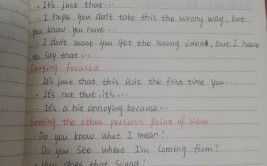 • It's just that...
• I hope you don't take this the wrong way, but...
you know you have...
• I don't want you get the wrong idea, but I have
to say that...
Getting focused
• It's just that this isn't the first time you...
• It's not that, it's...
• It's a bit annoying because...
Getting the other person's point of view
• Do you know what I mean?
• Do you see where I'm coming from?
• How does that sound?